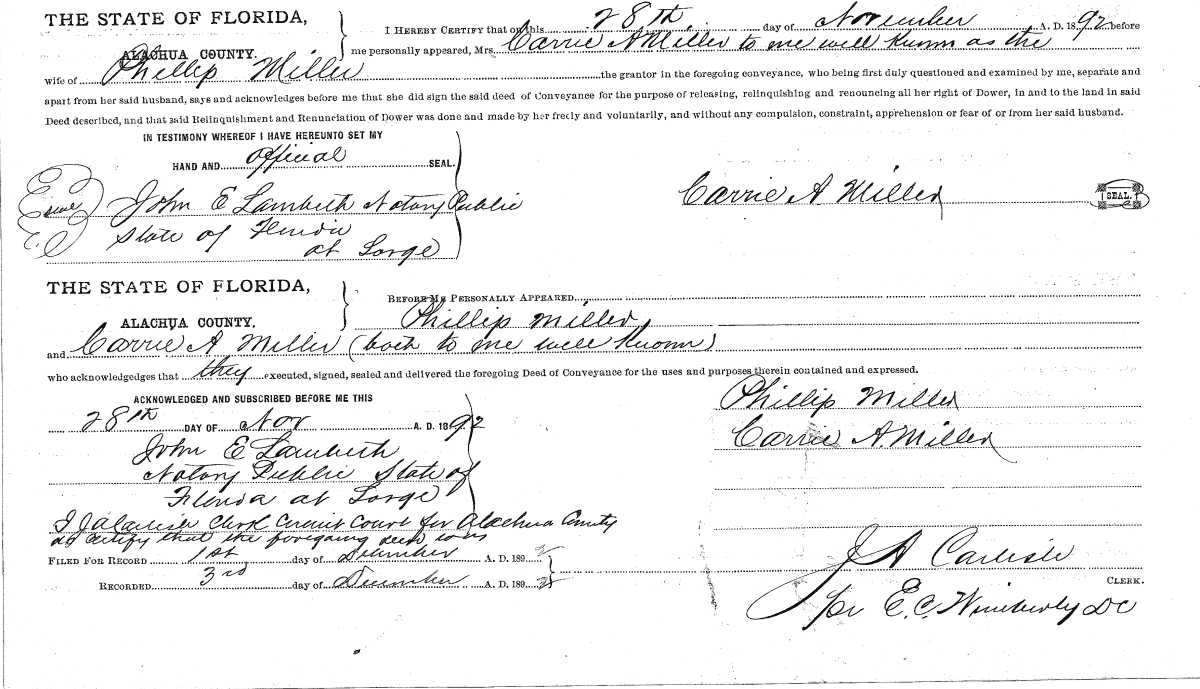 THE STATE OF FLORIDA,
I HEREBY CERTIFY that on this 28th day of November A. D. 1892 before
ALACHUA COUNTY.
me personally appeared, Mrs. Carrie A Miller to me well known as the
wife of Phillip Miller the grantor in the foregoing conveyance, who being first duly questioned and examined by me, separate and
apart from her said husband, says and acknowledges before me that she did sign the said deed of Conveyance for the purpose of releasing, relinquishing and renouncing all her right of Dower, in and to the land in said
Deed described, and that said Relinquishment and Renunciation of Dower was done and made by her freely and voluntarily, and without any compulsion, constraint, apprehension or fear of or from her said husband.
IN TESTIMONY WHEREOF I HAVE HEREUNTO SET MY
HAND AND official SEAL.
John E Lambeth Notary Public
Carrie A Miller SEAL.
State of Florida
at Large
THE STATE OF FLORIDA,
BEFORE ME PERSONALLY APPEARED
ALACHUA COUNTY.
Phillip Miller
and Carrie A Miller (both to me well known)
who acknowledgedges that they executed, signed, sealed and delivered the foregoing Deed of Conveyance for the uses and purposes therein contained and expressed.
ACKNOWLEDGED AND SUBSCRIBED BEFORE ME THIS
Phillip Miller
28th DAY OF Nov A. D. 1892
Carrie A. Miller
John E Lambeth
Notary Public State of
Florida at Large
I J A Carlisle Clerk Circuit Court for Alachua County
do certify that the foregoing deed was
FILED FOR RECORD 1st day of December A. D. 1892
J A Carlisle
RECORDED 3rd day of December A. D. 1892
CLERK.
per E. C. Wimberly DC